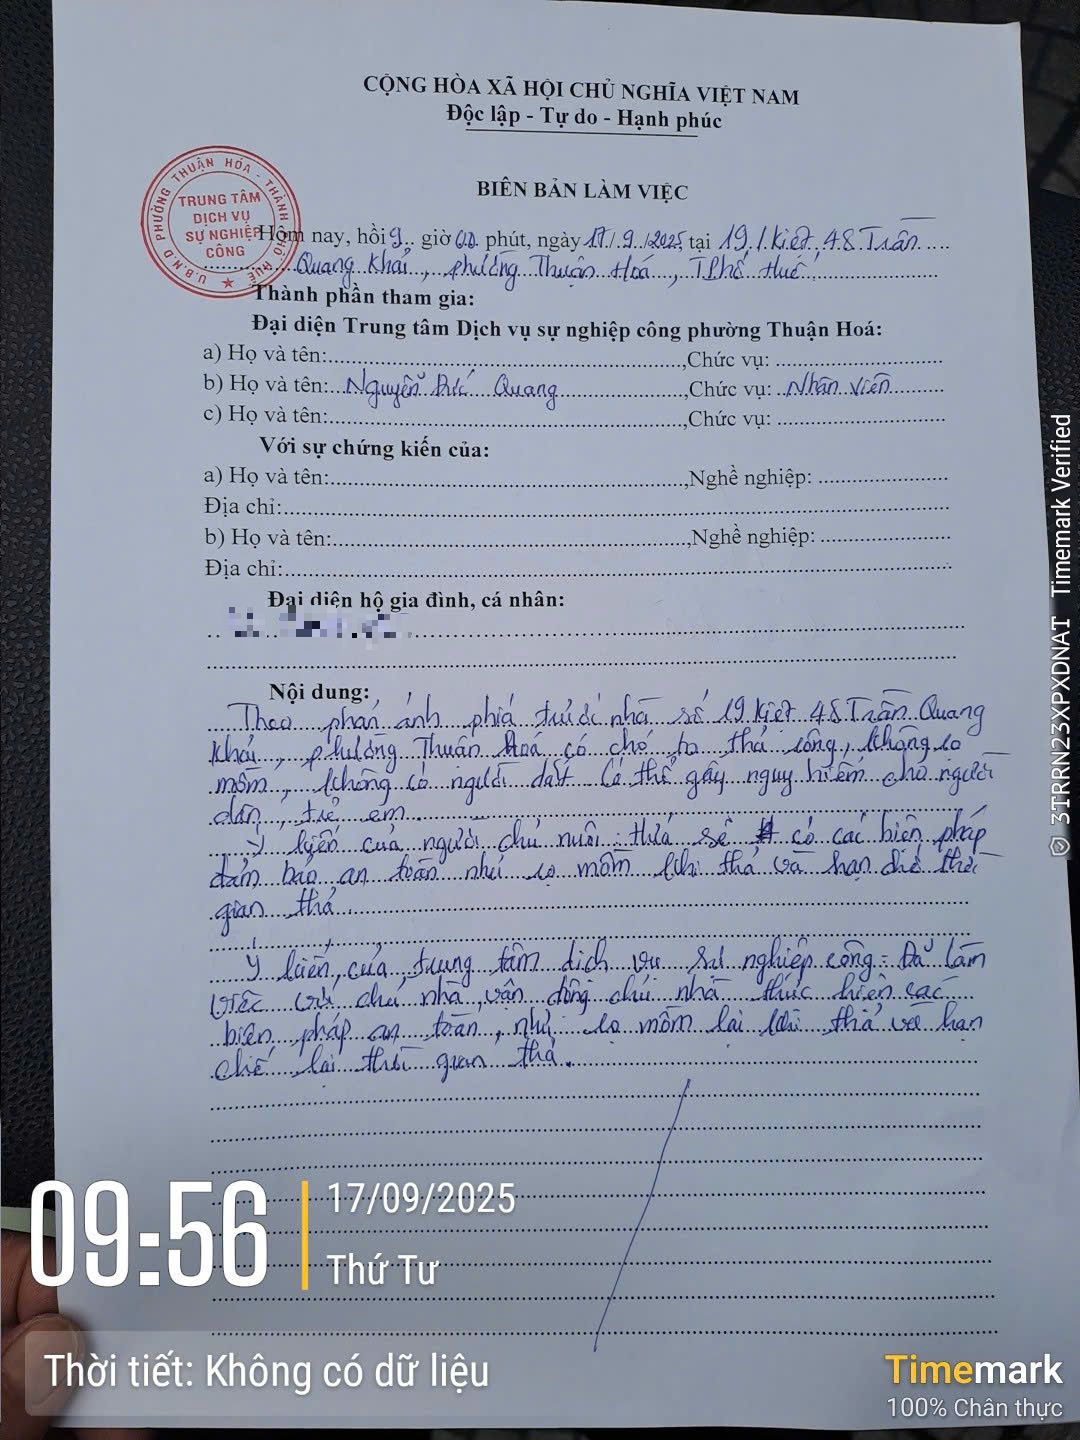 CỘNG HÒA XÃ HỘI CHỦ NGHĨA VIỆT NAM
Độc lập - Tự do - Hạnh phúc
U.B.N.D PHƯỜNG THUẬN HÓA - THÀNH PHỐ HUẾ
TRUNG TÂM
DỊCH VỤ
SỰ NGHIỆP
CÔNG
BIÊN BẢN LÀM VIỆC
Hôm nay, hồi 9 giờ 00 phút, ngày 17/9/2025, tại 19/kiệt 48 Trần
Quang Khải, phường Thuận Hoá, TPhố Huế.
Thành phần tham gia:
Đại diện Trung tâm Dịch vụ sự nghiệp công phường Thuận Hoá:
a) Họ và tên:..............................,Chức vụ: ..............
b) Họ và tên: Nguyễn Đức Quang,Chức vụ: Nhân viên
c) Họ và tên:..............................,Chức vụ: ..............
Với sự chứng kiến của:
a) Họ và tên:..............................,Nghề nghiệp: ..............
Địa chỉ:..............................
b) Họ và tên:..............................,Nghề nghiệp: ..............
Địa chỉ:..............................
Đại diện hộ gia đình, cá nhân:
Nội dung:
Theo phản ánh phía trước nhà số 19 kiệt 48 Trần Quang
Khải, phường Thuận Hoá có chó to thả rông, không rọ
mõm, không có người dắt. Có thể gây nguy hiểm cho người
dân, trẻ em.
Ý kiến của người chủ nuôi: thứa sẽ có các biện pháp
đảm bảo an toàn như rọ mõm khi thả và hạn chế thời
gian thả.
Ý kiến của trung tâm dịch vụ sự nghiệp công: Đã làm
việc với chủ nhà, vận động chủ nhà thực hiện các
biện pháp an toàn, như: rọ mõm lại khi thả và hạn
chế lại thời gian thả.
09:56
17/09/2025
Thứ Tư
Thời tiết: Không có dữ liệu
Timemark
100% Chân thực
3TRRN23XPXDNAT Timemark Verified